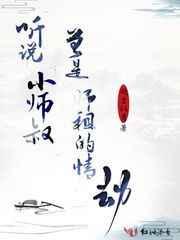 听说
小师叔
曾是
师祖的情
劫
著
红袖添香